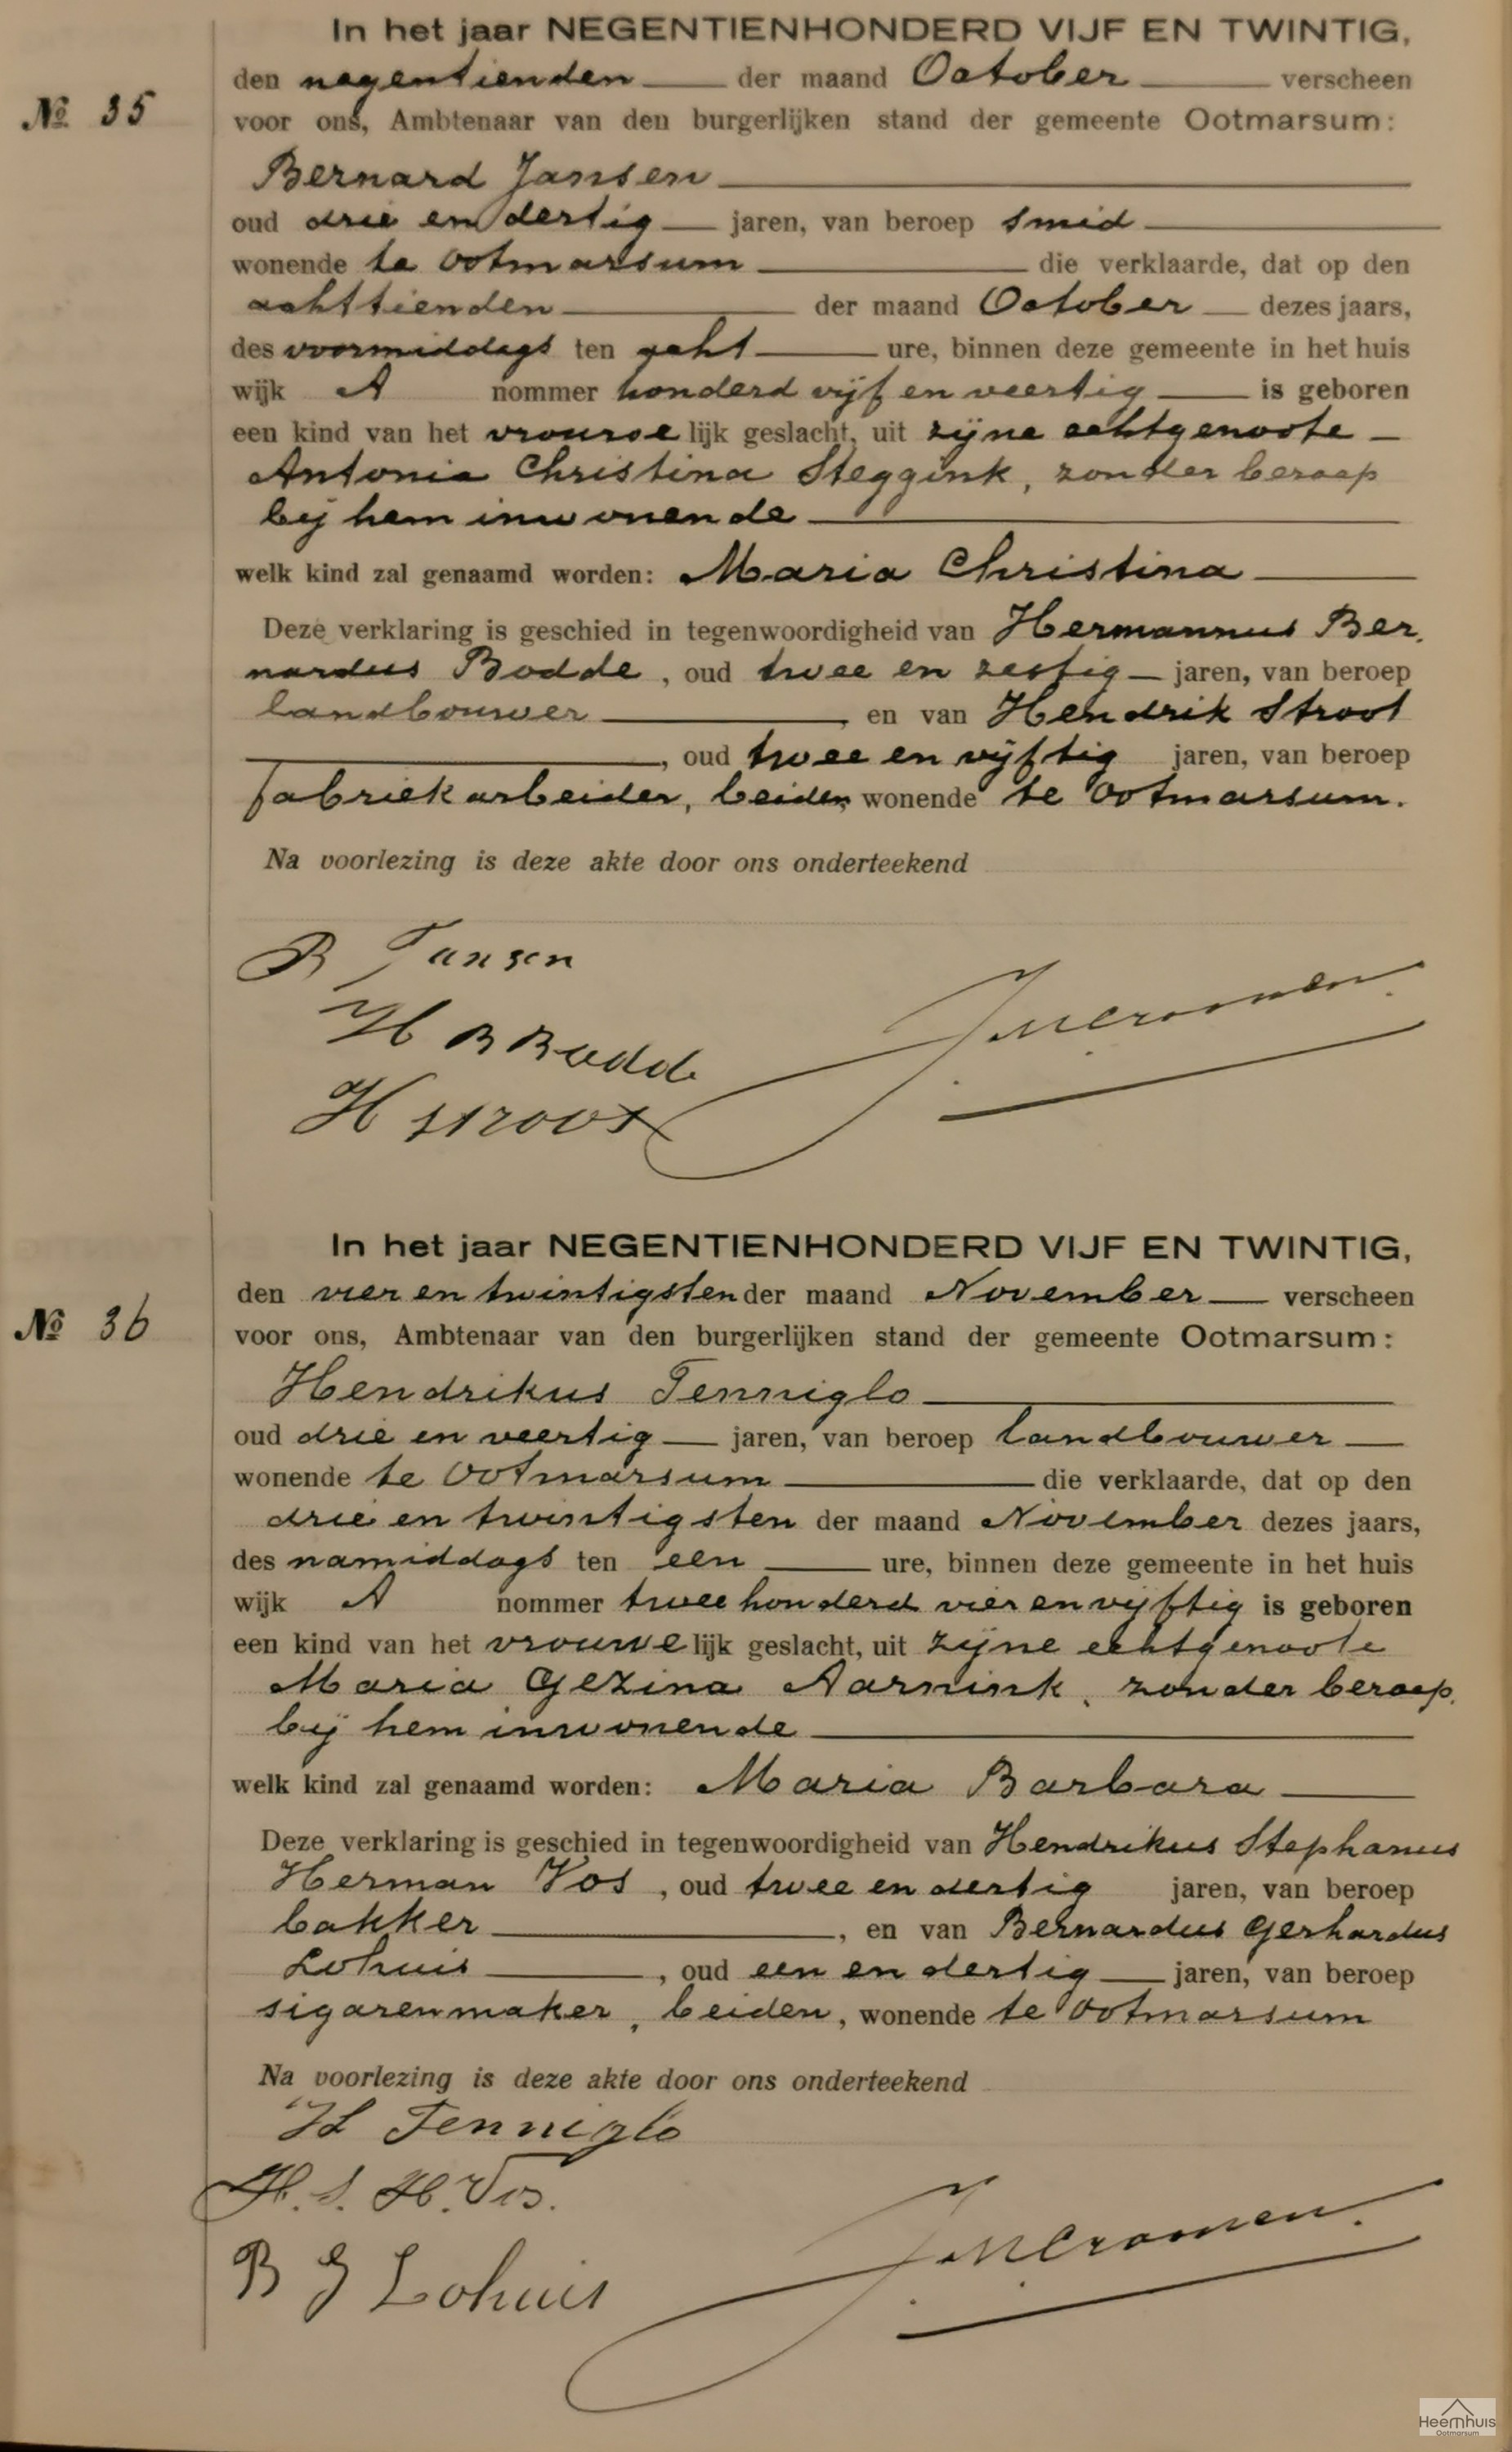 In het jaar NEGENTIENHONDERD VIJF EN TWINTIG,
den negentienden der maand October verscheen
No 35
voor ons, Ambtenaar van den burgerlijken stand der gemeente Ootmarsum:
Bernard Jansen
oud drie en dertig jaren, van beroep smid
wonende te Ootmarsum die verklaarde, dat op den
achttienden der maand October dezes jaars,
des voormiddags ten acht ure, binnen deze gemeente in het huis
wijk A nommer honderd vijf en veertig is geboren
een kind van het vrouwelijk geslacht, uit zijne echtgenoote
Antonia Christina Steggink, zonder beroep
bij hem inwonende
welk kind zal genaamd worden: Maria Christina
Deze verklaring is geschied in tegenwoordigheid van Hermannus Ber-
nardus Bodde, oud twee en zestig jaren, van beroep
landbouwer, en van Hendrik Stroot
, oud twee en vijftig jaren, van beroep
fabriekarbeider, beiden wonende te Ootmarsum.
Na voorlezing is deze akte door ons onderteekend
B Jansen
H B Bodde
H Stroot
In het jaar NEGENTIENHONDERD VIJF EN TWINTIG,
den vier en twintigsten der maand November verscheen
No 36
voor ons, Ambtenaar van den burgerlijken stand der gemeente Ootmarsum:
Hendrikus Tenniglo
oud drie en veertig jaren, van beroep landbouwer
wonende te Ootmarsum die verklaarde, dat op den
drie en twintigsten der maand November dezes jaars,
des namiddags ten een ure, binnen deze gemeente in het huis
wijk A nommer twee honderd vier en vijftig is geboren
een kind van het vrouwelijk geslacht, uit zijne echtgenoote
Maria Gezina Aarnink, zonder beroep,
bij hem inwonende
welk kind zal genaamd worden: Maria Barbara
Deze verklaring is geschied in tegenwoordigheid van Hendrikus Stephanus
Herman Vos, oud twee en dertig jaren, van beroep
bakker, en van Bernardus Gerhardus
Lohuis, oud een en dertig jaren, van beroep
sigarenmaker, beiden, wonende te Ootmarsum
Na voorlezing is deze akte door ons onderteekend
H Tenniglo
H. S. H. Vos.
B G Lohuis
Heemhuis
Ootmarsum